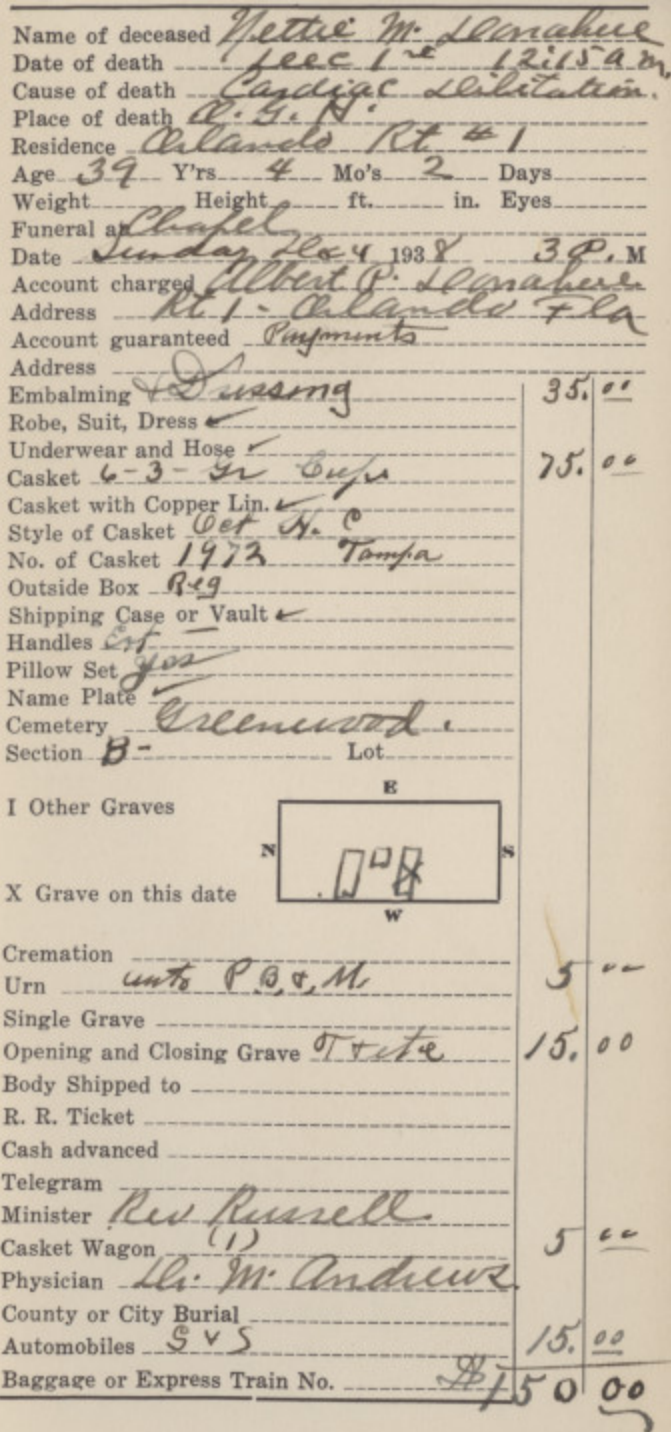 Name of deceased Nettie M. Donahue
Date of death Dec 1st 12:15 a m.
Cause of death Cardiac Dilitation.
Place of death O. G. H.
Residence Orlando Rt # 1
Age 39 Y'rs 4 Mo's 2 Days
Weight Height ft. in. Eyes
Funeral at Chapel
Date Sunday Dec 4 1938 3 P. M
Account charged Albert P. Donahue
Address Rt 1 - Orlando Fla
Account guaranteed Payments
Address
Embalming & Dressing 35.00
Robe, Suit, Dress ✓
Underwear and Hose ✓
Casket 6-3- Gr 75.00
Casket with Copper Lin. ✓
Style of Casket Oct H. C
No. of Casket 1972 Tampa
Outside Box Reg
Shipping Case or Vault ✓
Handles Ext –
Pillow Set yes
Name Plate ✓
Cemetery Greenwood.
Section B- Lot
E
I Other Graves
N S
X Grave on this date
W
Cremation
Urn P. B. & M. 5 00
Single Grave
Opening and Closing Grave T & etc 15.00
Body Shipped to
R. R. Ticket
Cash advanced
Telegram
Minister Rev Russell
Casket Wagon (1) 5 00
Physician Dr. M. Andrews
County or City Burial
Automobiles S & S 15.00
Baggage or Express Train No. $150 00